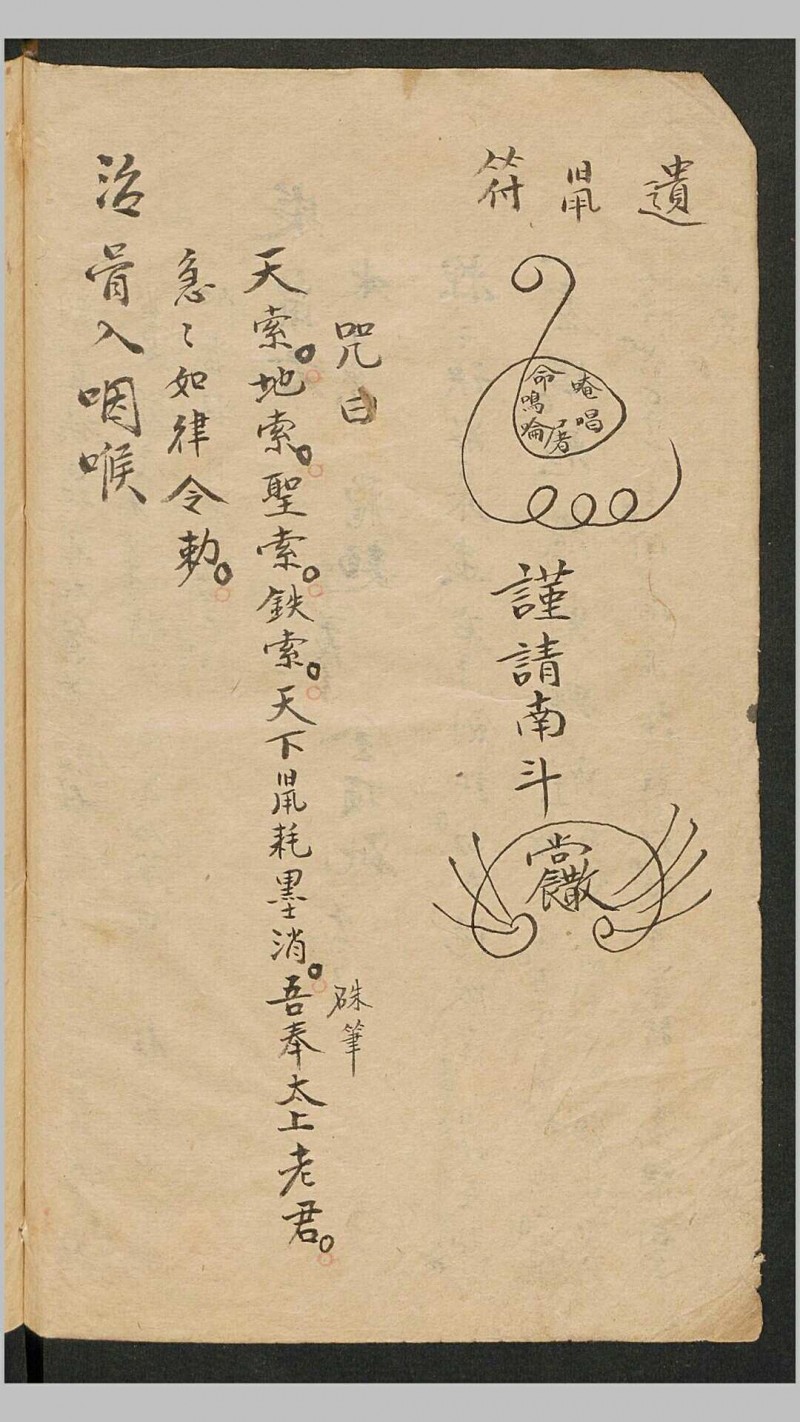 遺
鼡
符
唵 唱 命 鳴 㖮 唇
謹請南斗
咒曰
天索。地索。聖索。鉄索。天下鼡耗墨消。吾奉太上老君。
硃筆
急〻如律令勅。
治骨入咽喉